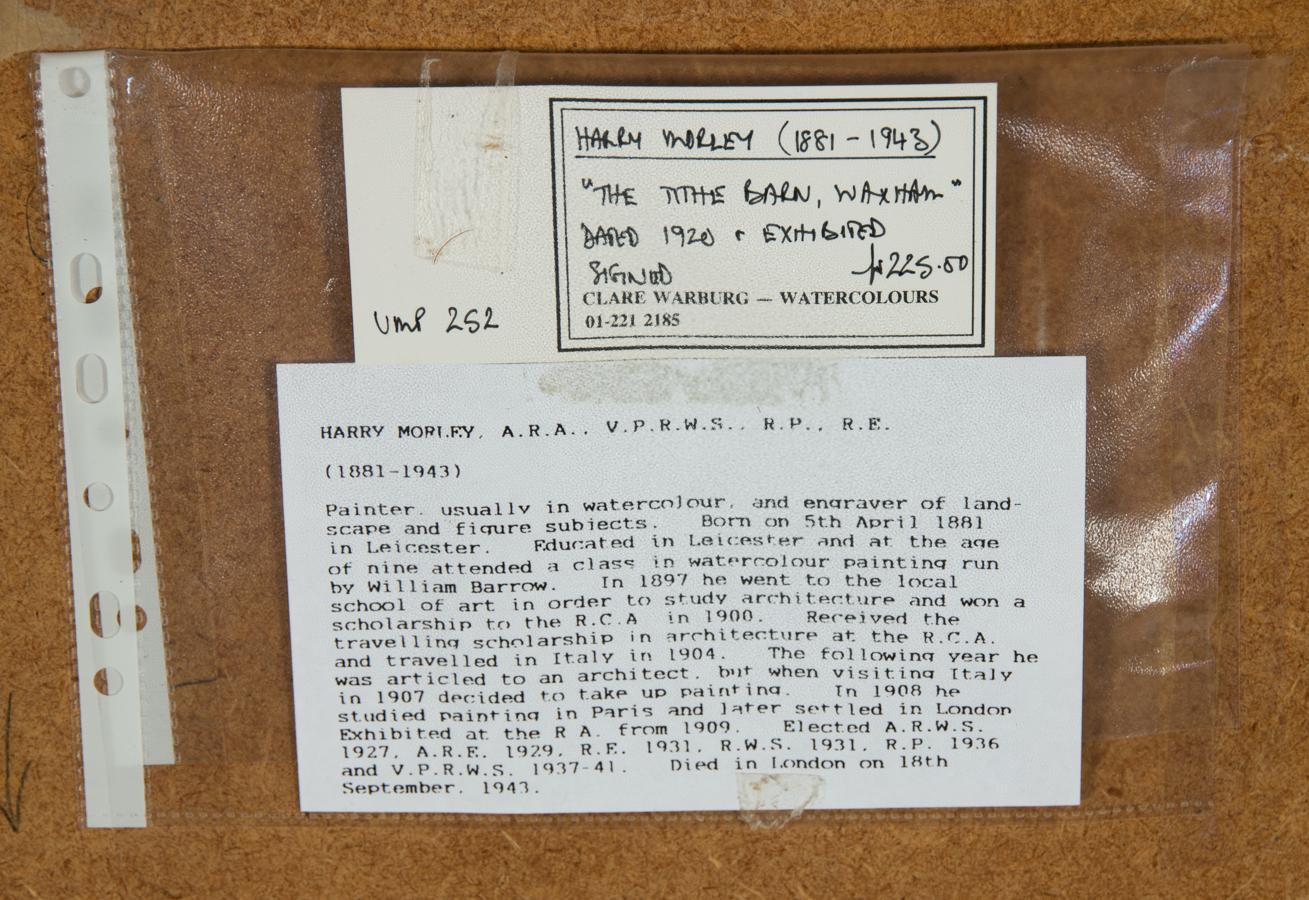 HARRY MORLEY (1881-1943)
"THE TITHE BARN, WAXHAM"
DATED 1920 & EXHIBITED
SIGNED £225.00
CLARE WARBURG — WATERCOLOURS
01-221 2185
VMP 252
HARRY MORLEY, A.R.A., V.P.R.W.S., R.P., R.E.
(1881-1943)
Painter, usually in watercolour, and engraver of land-
scape and figure subjects. Born on 5th April 1881
in Leicester. Educated in Leicester and at the age
of nine attended a class in watercolour painting run
by William Barrow. In 1897 he went to the local
school of art in order to study architecture and won a
scholarship to the R.C.A in 1900. Received the
travelling scholarship in architecture at the R.C.A.
and travelled in Italy in 1904. The following year he
was articled to an architect, but when visiting Italy
in 1907 decided to take up painting. In 1908 he
studied painting in Paris and later settled in London
Exhibited at the R A. from 1909. Elected A.R.W.S.
1927, A.R.E. 1929, R.E. 1931, R.W.S. 1931, R.P. 1936
and V.P.R.W.S. 1937-41. Died in London on 18th
September, 1943.